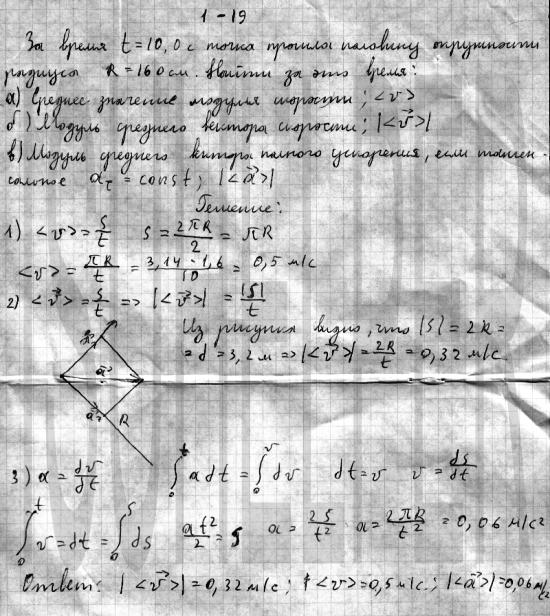 1-19
За время t=10,0 с точка прошла половину окружности
радиуса R=160 см. Найти за это время:
а) Среднее значение модуля скорости; <v>
б) Модуль среднего вектора скорости; |<v⃗>|
в) Модуль среднего вектора полного ускорения, если танген-
сальное a_τ = const; |<a⃗>|
Решение:
1) <v> = S/t S = 2πR/2 = πR
<v> = πR/t = 3,14·1,6/10 = 0,5 м/с
2) <v⃗> = S/t => |<v⃗>| = |S|/t
Из рисунка видно, что |S| = 2R =
= d = 3,2 м => |<v⃗>| = 2R/t = 0,32 м/с
a⃗
R
3) a = dv/dt ∫₀ᵗ a dt = ∫₀ᵛ dv dt = v v = ds/dt
∫₀ᵗ v = dt = ∫₀ˢ ds at²/2 = S a = 2S/t² a = 2πR/t² = 0,06 м/с²
Ответ: |<v⃗>| = 0,32 м/с; <v> = 0,5 м/с; |<a⃗>| = 0,06 м/с²